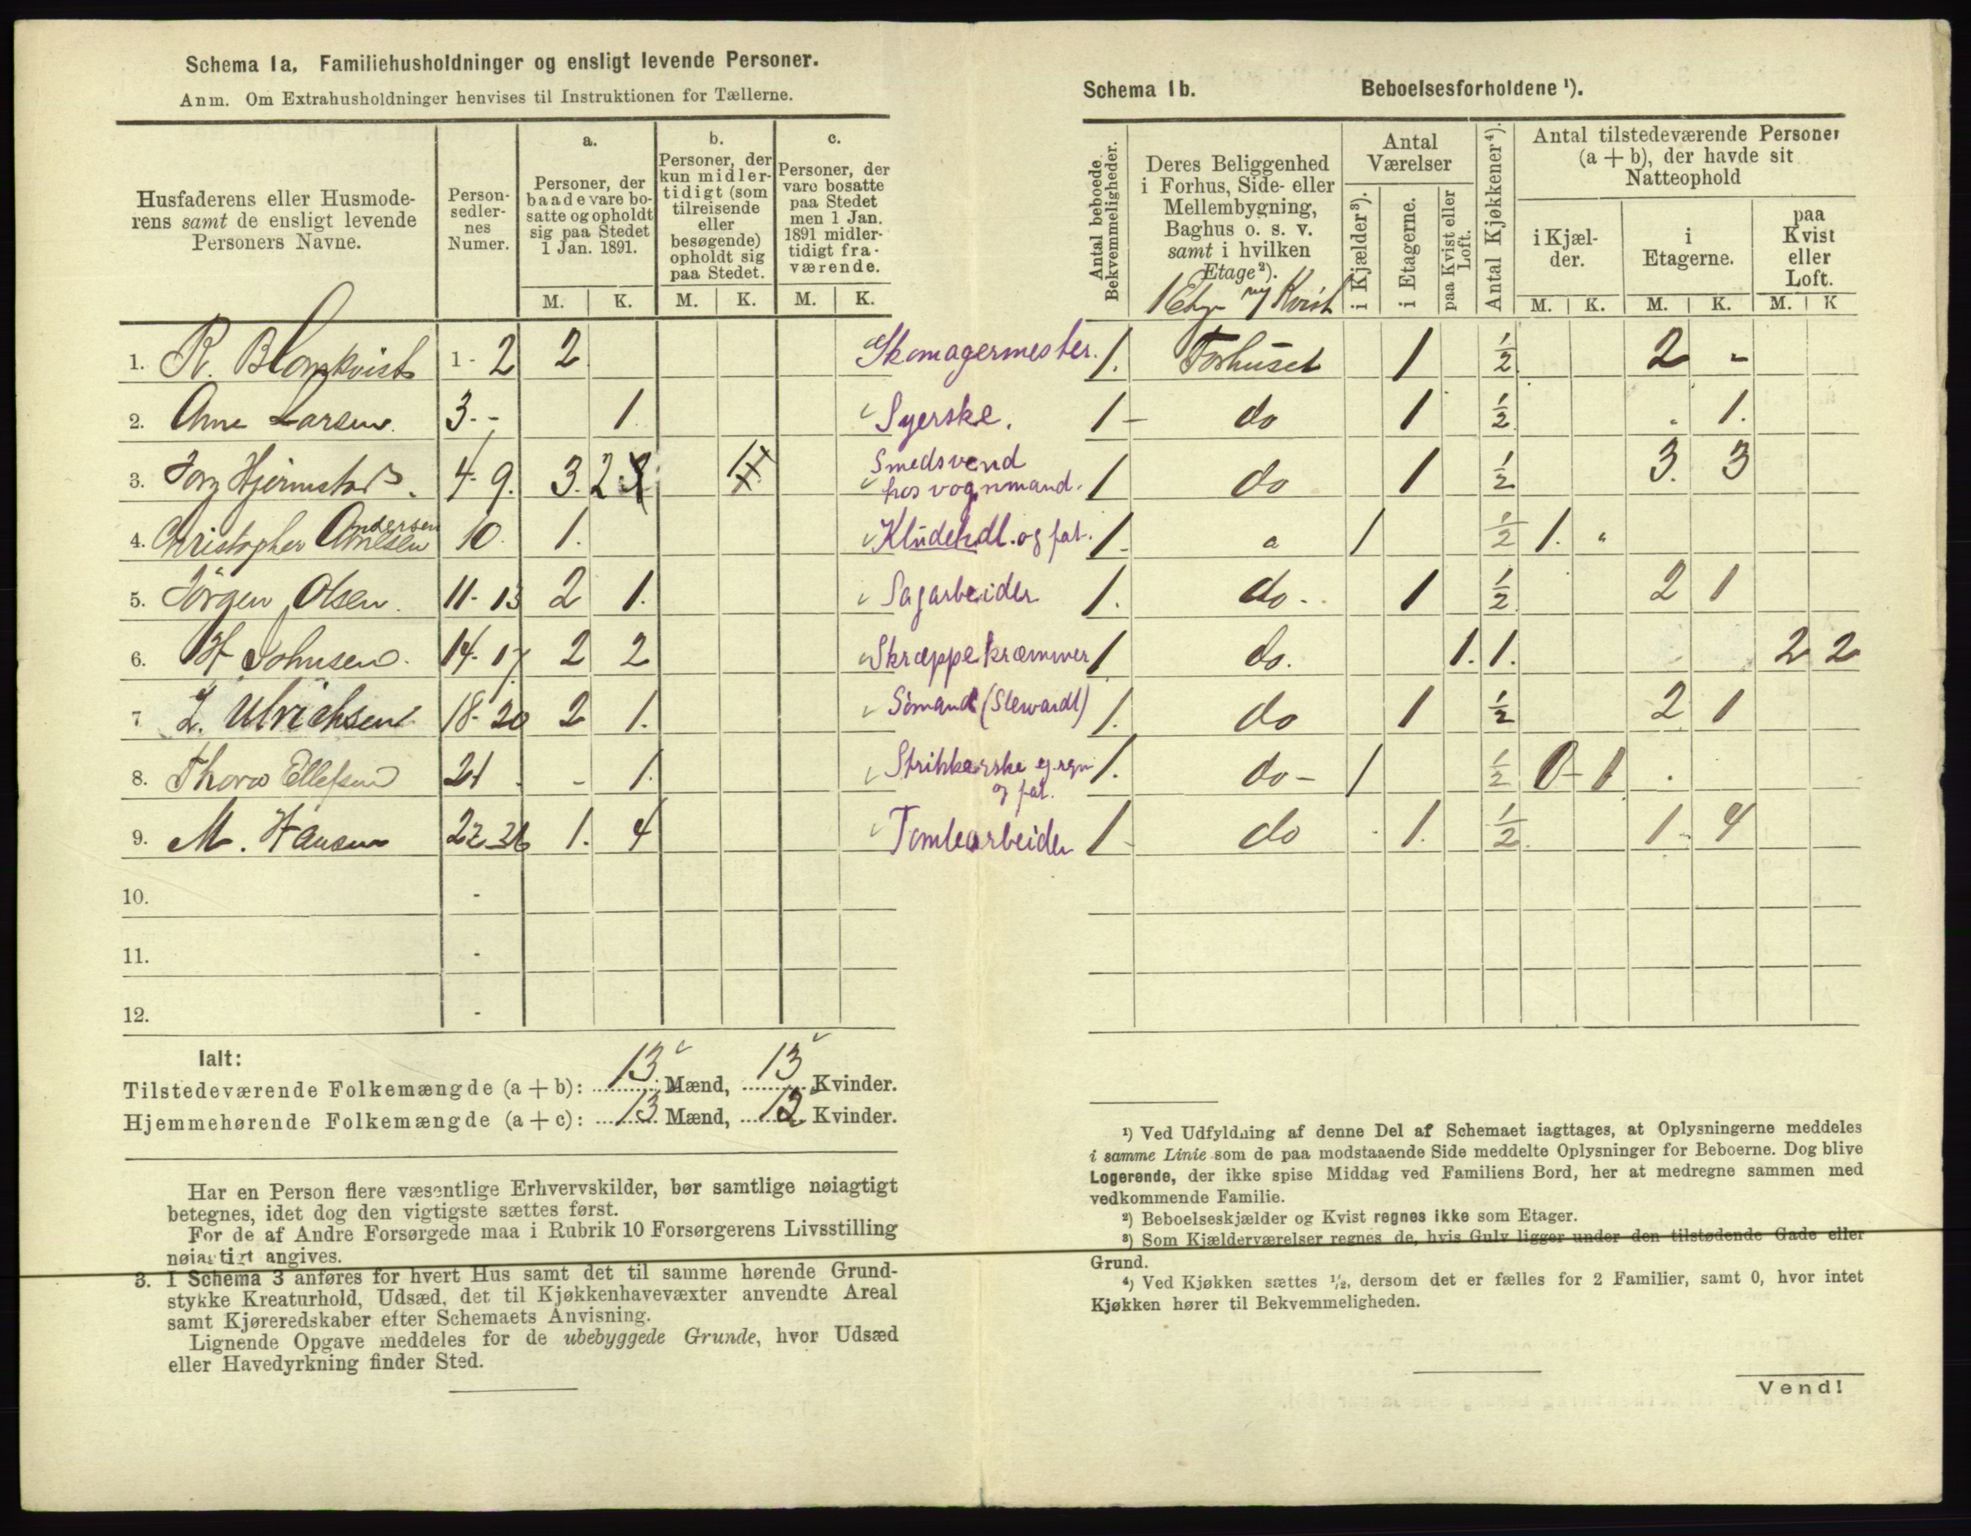 Schema 1a, Familiehusholdninger og ensligt levende Personer.
Anm. Om Extrahusholdninger henvises til Instruktionen for Tællerne.
Husfaderens eller Husmoderens samt de ensligt levende Personers Navne.
Person-sedlernes Numer.
a. Personer, der baade vare bosatte og opholdt sig paa Stedet 1 Jan. 1891.
b. Personer, der kun midlertidigt (som tilreisende eller besøgende) opholdt sig paa Stedet.
c. Personer, der vare bosatte paa Stedet men 1 Jan. 1891 midlertidigt fraværende.
M. K. M. K. M. K.
1. R. Blomkvist 1-2 2 Skomagermester.
2. Ane Larsen. 3.- 1. Syerske.
3. 4-9. 3. 2 Smedsvend
hos vognmand.
4. Christopher Andersen 10. 1. Kludehdl. og fat.
5. Jörgen Olsen. 11-13 2 1. Sagarbeider
6. H Johnsen. 14-17 2 2 Skræppekræmmer
7 Z. Ulrichsen. 18-20 2 1. Sömand (Stewardt)
8. Thora Ellefsen 21. - 1. Strikkerske
og fat.
9. M. Hansen 22-26 1. 4 Tomtearbeider
10. -
11. -
12. -
Ialt:
Tilstedeværende Folkemængde (a + b): 13 Mænd, 13 Kvinder.
Hjemmehørende Folkemængde (a + c): 13 Mænd, 12 Kvinder.
Har en Person flere væsentlige Erhvervskilder, bør samtlige nøiagtigt
betegnes, idet dog den vigtigste sættes først.
For de af Andre Forsørgede maa i Rubrik 10 Forsørgerens Livsstilling
nøiagtigt angives.
3. I Schema 3 anføres for hvert Hus samt det til samme hørende Grund-
stykke Kreaturhold, Udsæd, det til Kjøkkenhavevæxter anvendte Areal
samt Kjøreredskaber efter Schemaets Anvisning.
Lignende Opgave meddeles for de ubebyggede Grunde, hvor Udsæd
eller Havedyrkning finder Sted.
Schema 1b. Beboelsesforholdene ¹).
Antal beboede Bekvemmeligheder.
Deres Beliggenhed i Forhus, Side- eller Mellembygning, Baghus o. s. v. samt i hvilken Etage²).
1 Etg. Kvist
Antal Værelser
i Kjælder³).
i Etagerne.
paa Kvist eller Loft.
Antal Kjøkkener⁴).
Antal tilstedeværende Personer (a + b), der havde sit Natteophold
i Kjælder. i Etagerne. paa Kvist eller Loft.
M. K. M. K. M. K
1. Forhuset 1 ½ 2 -
1- do 1 ½ . 1.
1 do 1 ½ 3. 3
1- 1 ½ 1. "
1. do. 1 ½ 2 1
1 do. 1. 1. 2 2
1. do 1 ½ 2 1
1. do- 1 ½ 0-1 .
1- do 1. ½ 1- 4
¹) Ved Udfyldning af denne Del af Schemaet iagttages, at Oplysningerne meddeles
i samme Linie som de paa modstaaende Side meddelte Oplysninger for Beboerne. Dog blive
Logerende, der ikke spise Middag ved Familiens Bord, her at medregne sammen med
vedkommende Familie.
²) Beboelseskjælder og Kvist regnes ikke som Etager.
³) Som Kjælderværelser regnes de, hvis Gulv ligger under den tilstødende Gade eller
Grund.
⁴) Ved Kjøkken sættes ½, dersom det er fælles for 2 Familier, samt 0, hvor intet
Kjøkken hører til Bekvemmeligheden.
Vend!